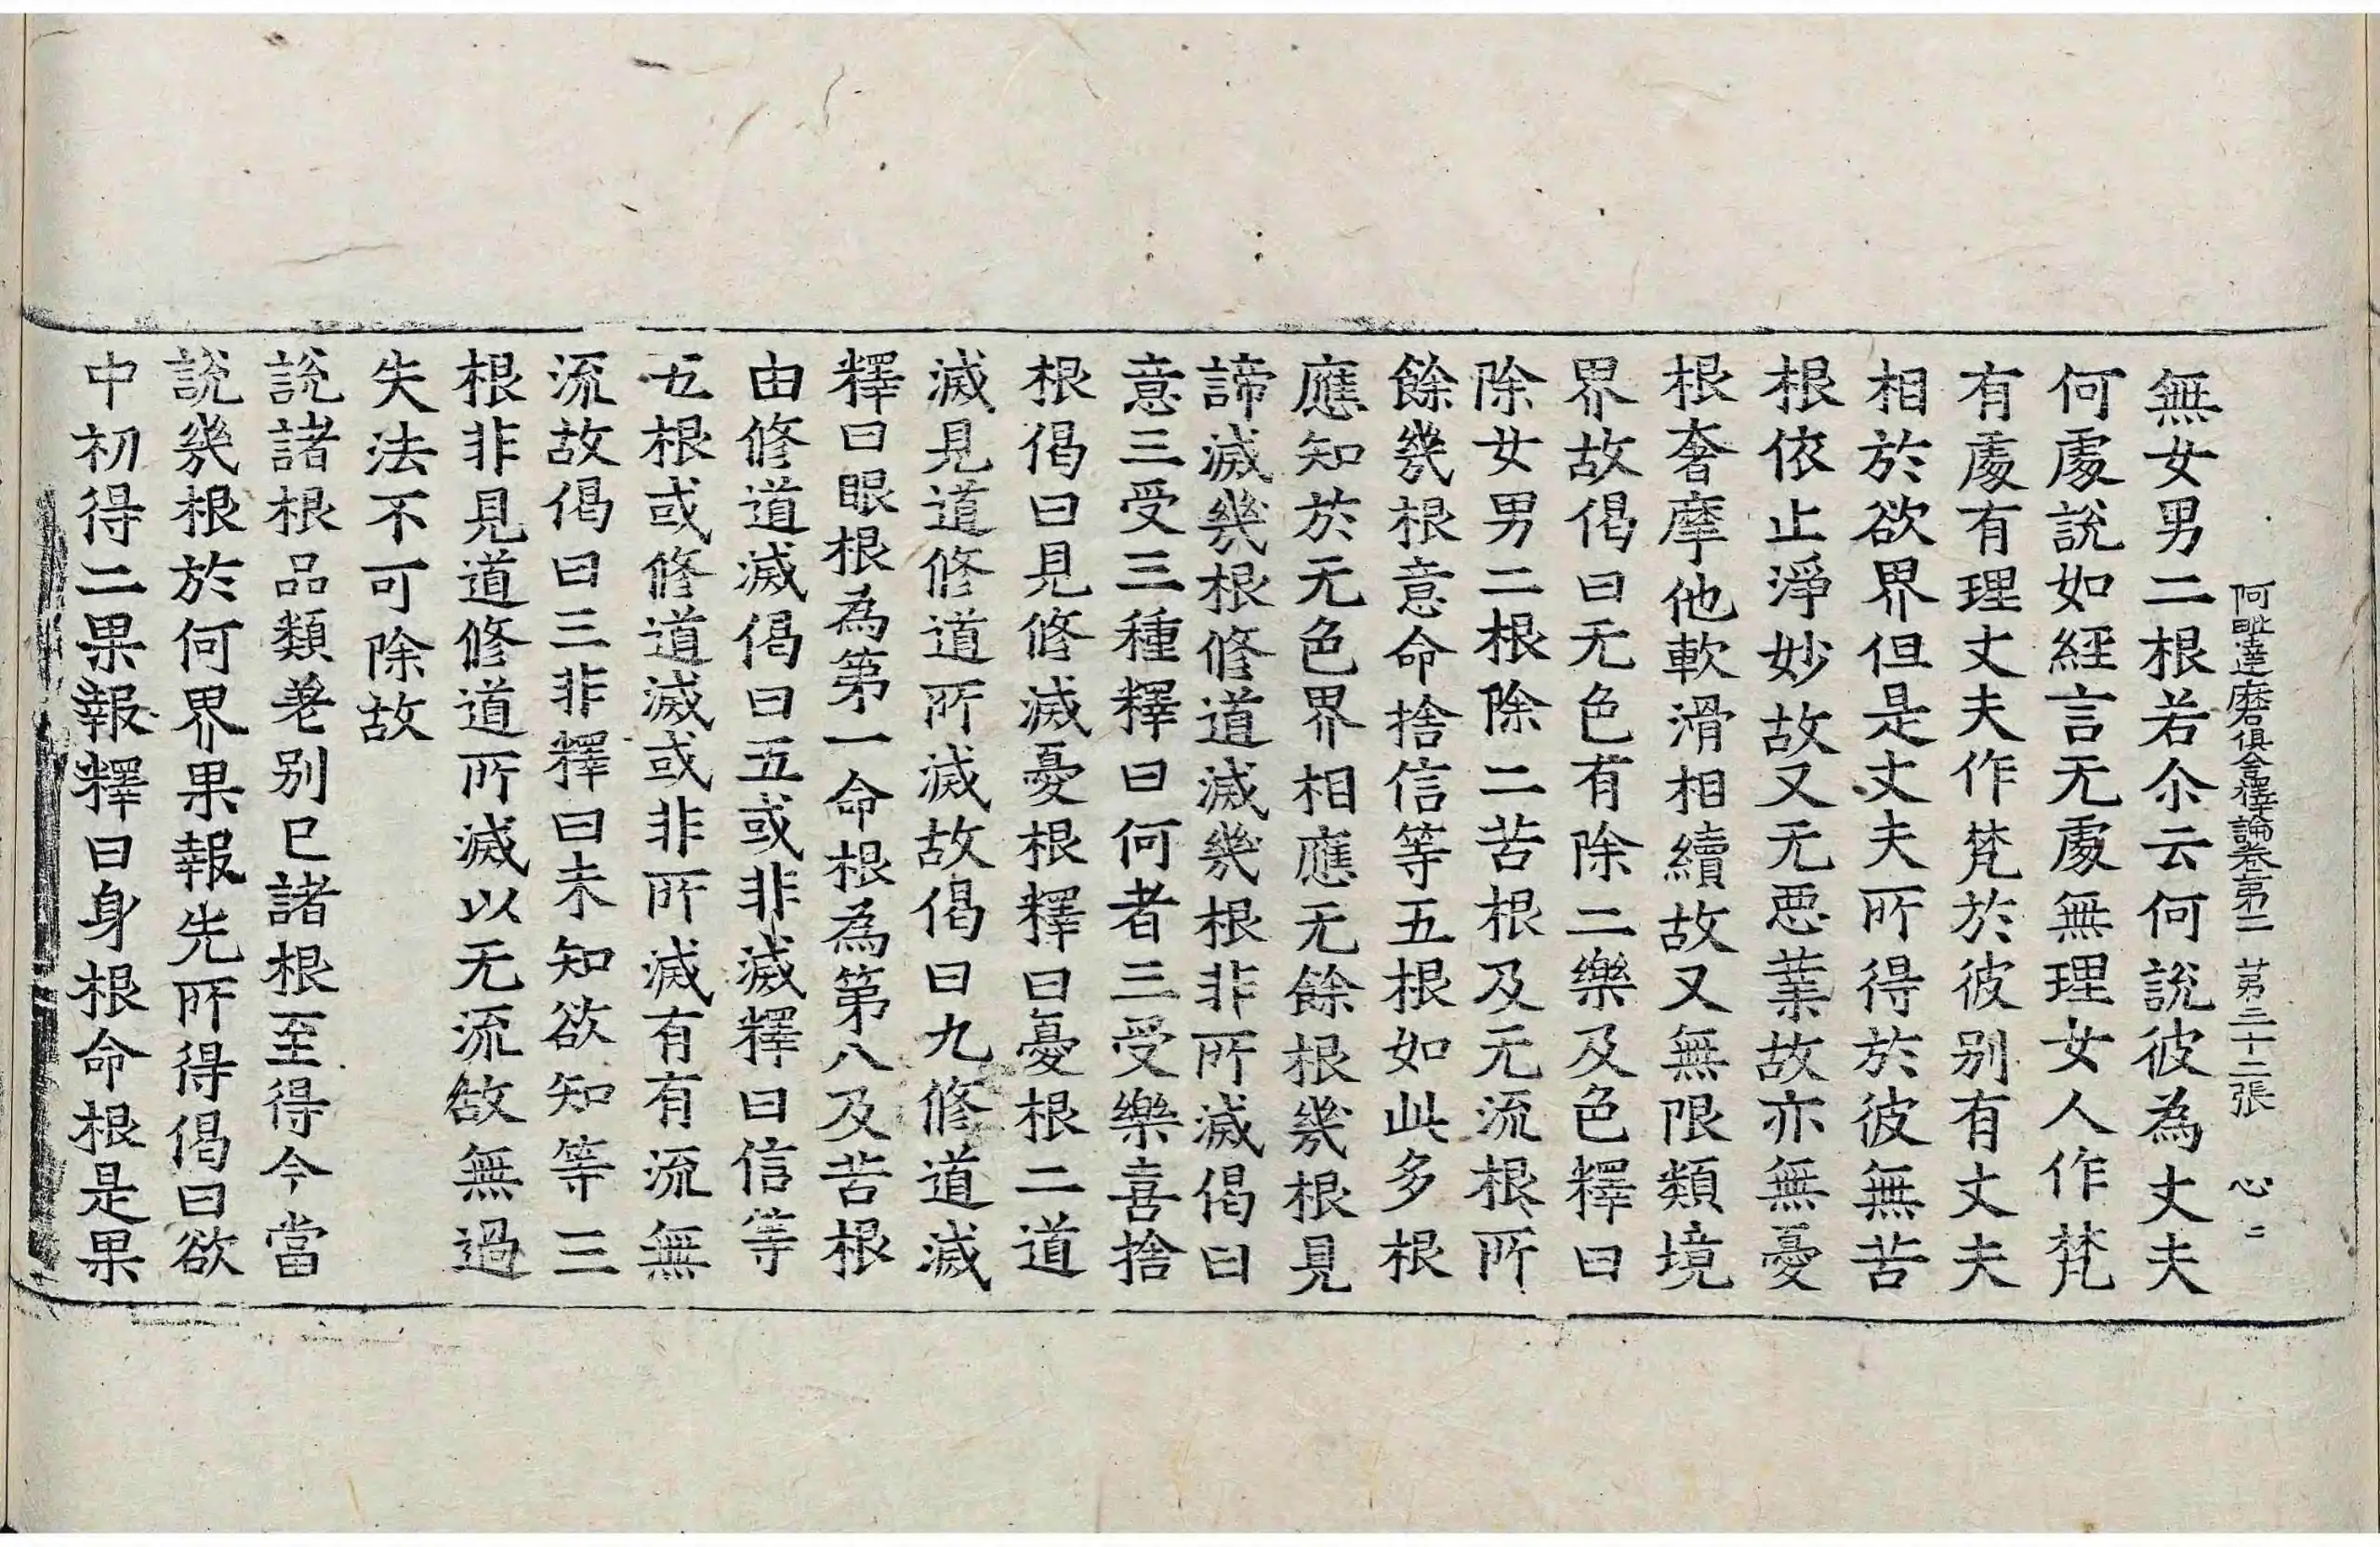 阿毗達磨俱舍釋論卷第二 第三十二張 心二
無女男二根若尒云何說彼為丈夫
何處說如經言无處無理女人作梵
有處有理丈夫作梵於彼別有丈夫
相於欲界但是丈夫所得於彼無苦
根依止淨妙故又无惡業故亦無憂
根奢摩他軟滑相續故又無限類境
界故偈曰无色有除二樂及色釋曰
除女男二根除二苦根及无流根所
餘幾根意命捨信等五根如此多根
應知於无色界相應无餘根幾根見
諦滅幾根修道滅幾根非所滅偈曰
意三受三種釋曰何者三受樂喜捨
根偈曰見修滅憂根釋曰憂根二道
滅見道修道所滅故偈曰九修道滅
釋曰眼根為第一命根為第八及苦根
由修道滅偈曰五或非滅釋曰信等
五根或修道滅或非所滅有有流無
流故偈曰三非釋曰未知欲知等三
根非見道修道所滅以无流故無過
失法不可除故
說諸根品類差別已諸根至得今當
說幾根於何界果報先所得偈曰欲
中初得二果報釋曰身根命根是果